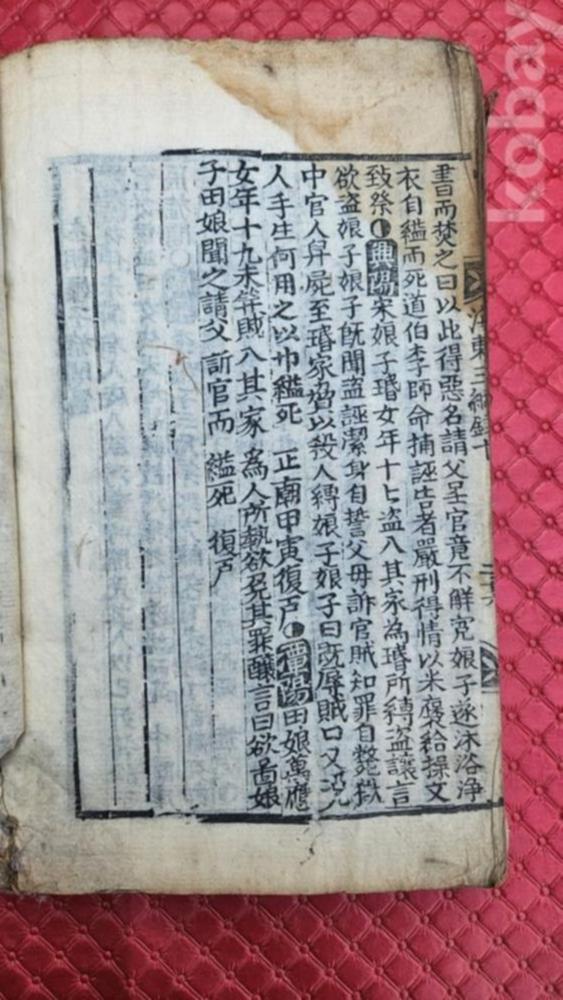 書而焚之曰以此得惡名請父呈官竟不觧寃娘子遂沐浴淨
衣自縊而死道伯李師命捕誣告者嚴刑得情以米裒給操文
致祭興陽宋娘子璿女年十七盗入其家為璿所縛盗讓言
欲盗娘子娘子旣聞盗誣潔身自誓父母訴官賊知罪自斃獄
中官人舁屍至璿家脅以殺人縛娘子娘子曰旣辱賊口又況
人手生何用之以巾縊死 正廟甲寅復戶潭陽田娘萬應
女年十九未筓賊入其家為人所執欲免其罪釀言曰欲啚娘
子田娘聞之請父訴官而縊死 復戶
海東三綱錄十
kobay